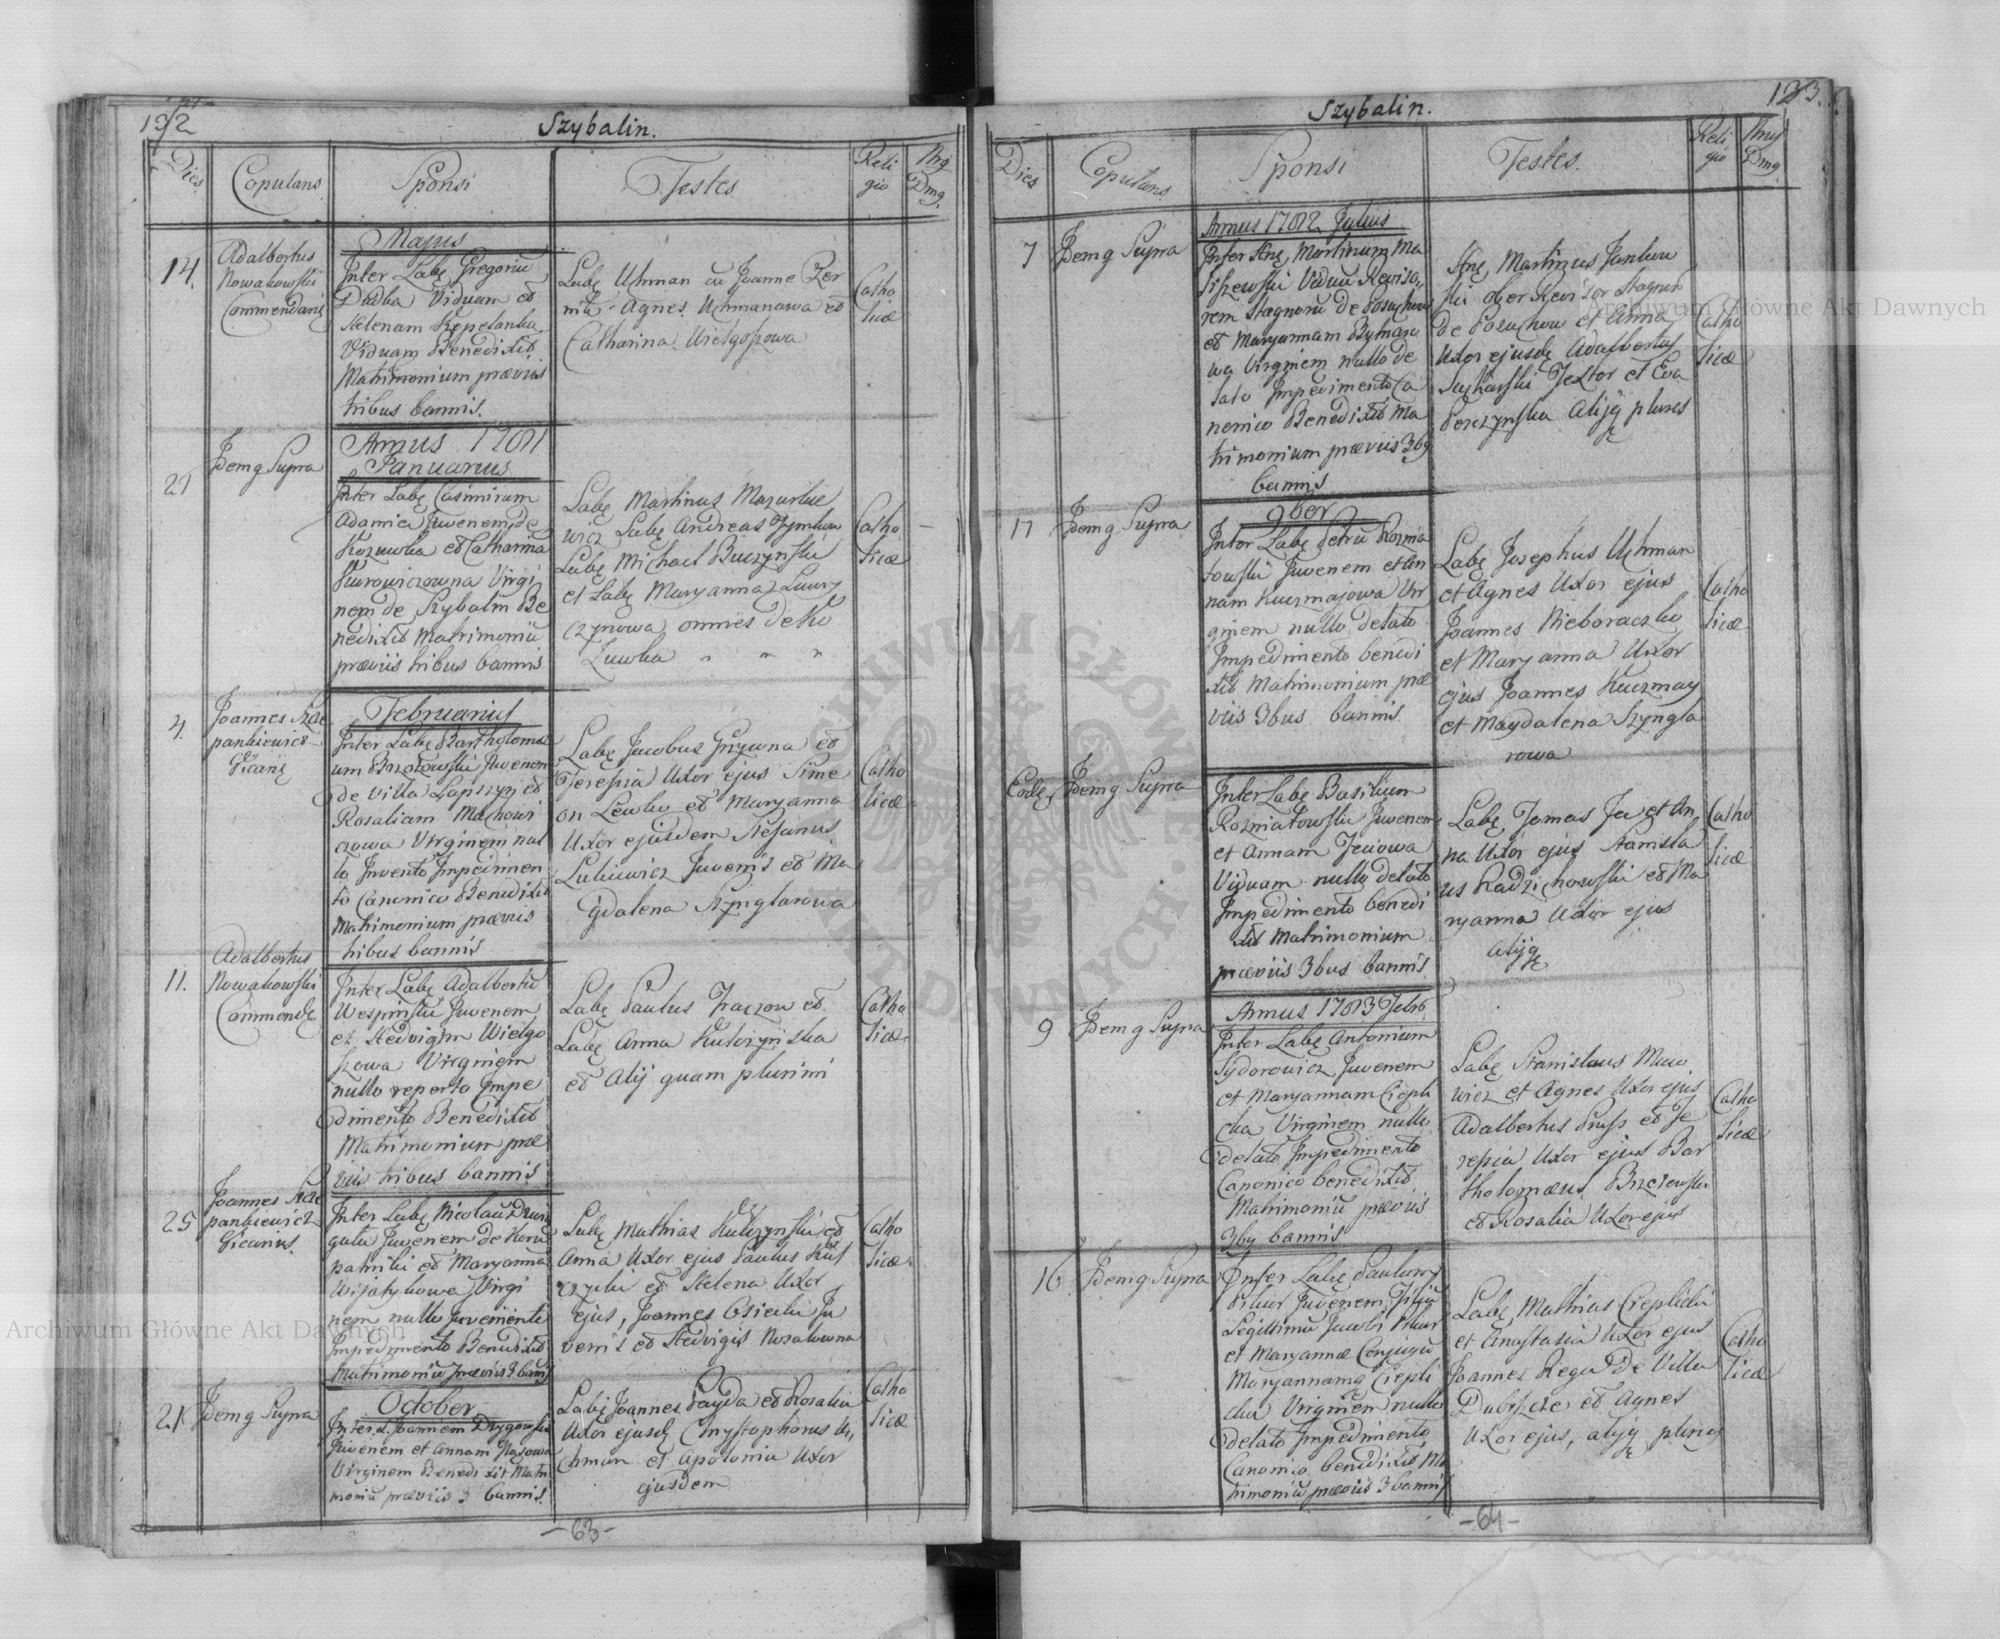 132
Szybalin.
Dies
Copulans
Sponsi
Testes
Reli
gio
Nrg
Dmg.
Majus
14.
Adalbertus
Nowakowski
Commendarię
Inter Labę Gregoriū
Dudba Viduum et
Helenam Kępelanka
Viduam Benedixit
Matrimonium prævus
tribus bannis.
Labę Uhman cū Joanne Czer
Agnes Uhmanowa et
Catharina Wielgoszowa
Catho
licæ
Annus 1781
Januarius
21
Idemq Supra
Inter Labę Casimirum
Adamicz Juvenem de
Kozuwka et Catharina
Kurowiczowna Virgi
nem de Szybalin Be
nedixit Matrimoniū
præviis tribus bannis
Labę Martinus Mazurkie
wicz Labę Andreas
Labę Michael Buczynski
et Labę Maryanna
czynowa omnes de Ko
Zuwka " " "
Catho
licæ
Februarius
4.
Joannes Szcze
pankiewicz
Vicarię
Inter Labę Bartholomæ
um Brzozowski Juvenem
de villa Lapszyn et
Rosaliam Machowi
czowa Virginem nul
lo Invento Impedimen
to Canonico Benedixit
Matrimonium prævus
tribus bannis
Labę Jacobus Grzywna et
Teressia Uxor ejus Sime
on Lewko et Maryanna
Uxor ejusdem Stefanus
Lukiewicz Juvenis et Ma
gdalena Szynglarowa
Catho
licæ
11.
Adalbertus
Nowakowski
Commendę
Inter Labę Adalbertū
Wespinski Juvenem
et Hedvigim Wielgo
szowa Virginem
nullo reperto Impe
dimento Benedixit
Matrimonium præ
viis tribus bannis
Labę Paulus Tkaczow et
Labę Anna Kulczyńska
et Alij quam plurimi
Catho
licæ
25
Joannes Szcze
pankiewicz
Vicarius.
Inter Labę Nicolaū
Juvenem de
et Maryanna
Virgi
nem nullo Inveniente
Impedimento Benedixit
Matrimoniū præviis 3 bannis
Labę Mathias Kulczynski et
Anna Uxor ejus Paulus
et Helena Uxor
ejus, Joannes Osiecki Ju
venis et Hedvigis Kozalowna
Catho
licæ
October
21
Idemq Supra
Inter L. Joannem Drygowski
Juvenem et Annam
Virginem Benedixit Matri
moniū præviis 3 bannis
Labę Joannes Gayda et Rosalia
Uxor ejusdę Chrystophorus U,,
chman et Apolonia Uxor
ejusdem
Catho
licæ
-63-
133.
Szybalin.
Dies
Copulans
Sponsi
Testes.
Reli
gio
Dmg
Annus 1782 Julius
7
Idemq Supra
Inter Gnę Martinum Ma
liszewski Viduū Reviso,,
rem Stagnorū de Posuchow
et Maryannam
wa Virginem nullo de
lato Impedimento Ca
nonico Benedixit Ma
trimonium præviis 3bg
bannis
Gnę Martinus Jankow
ski ober Revizor Stagnor
de Posuchow et Anna
Uxor ejusdę Adalbertus
Textor et Eva
Perczynska Alijq plures
Catho
licæ
9ber
17
Idemq Supra
Inter Labę Petrū Roznia
towski Juvenem et An
nam Kuczmajowa Vir
ginem nullo delato
Impedimento benedi
xit Matrimonium præ
viis 3bus bannis
Labę Josephus Uhman
et Agnes Uxor ejus
Joannes Nieboraczko
et Maryanna Uxor
ejus Joannes Kuczmay
et Magdalena Szyngla
rowa
Catho
licæ
Eodę
Idemq Supra
Inter Labę Basilium
Rozniatowski Juvenem
et Annam
Viduam nullo delato
Impedimento benedi
xit Matrimonium
præviis 3bus bannis
Labę Tomas et An
na Uxor ejus Stanisla
us Radzichowski et Ma
ryanna Uxor ejus
alijq
Catho
licæ
Annus 1783 Febr.
9
Idemq Supra
Inter Labę Antonium
Sydorowicz Juvenem
et Maryannam Ciepli
cka Virginem nullo
delato Impedimento
Canonico benedixit
Matrimoniū præviis
3bg bannis
Labę Stanislaus
wicz et Agnes Uxor ejus
Adalbertus Pruss et Te
ressia Uxor ejus Bar
tholomæus Brzezowski
et Rosalia Uxor ejus
Catho
licæ
16
Idemq Supra
Inter Labę Paulum
Juvenem Filiū
Legittimū Jacobi
et Maryannæ Conjugū
Maryannamq Ciepli
cka Virginem nullo
delato Impedimento
Canonico benedixit Ma
trimoniū præviis 3 bannis
Labę Mathias Cieplicki
et Anastasia Uxor ejus
Joannes Rega de Villa
Dubszcze et Agnes
Uxor ejus, alijq plures
Catho
licæ
-64-
Archiwum Główne Akt Dawnych
Archiwum Główne Akt Dawnych
ARCHIWUM GŁÓWNE AKT DAWNYCH